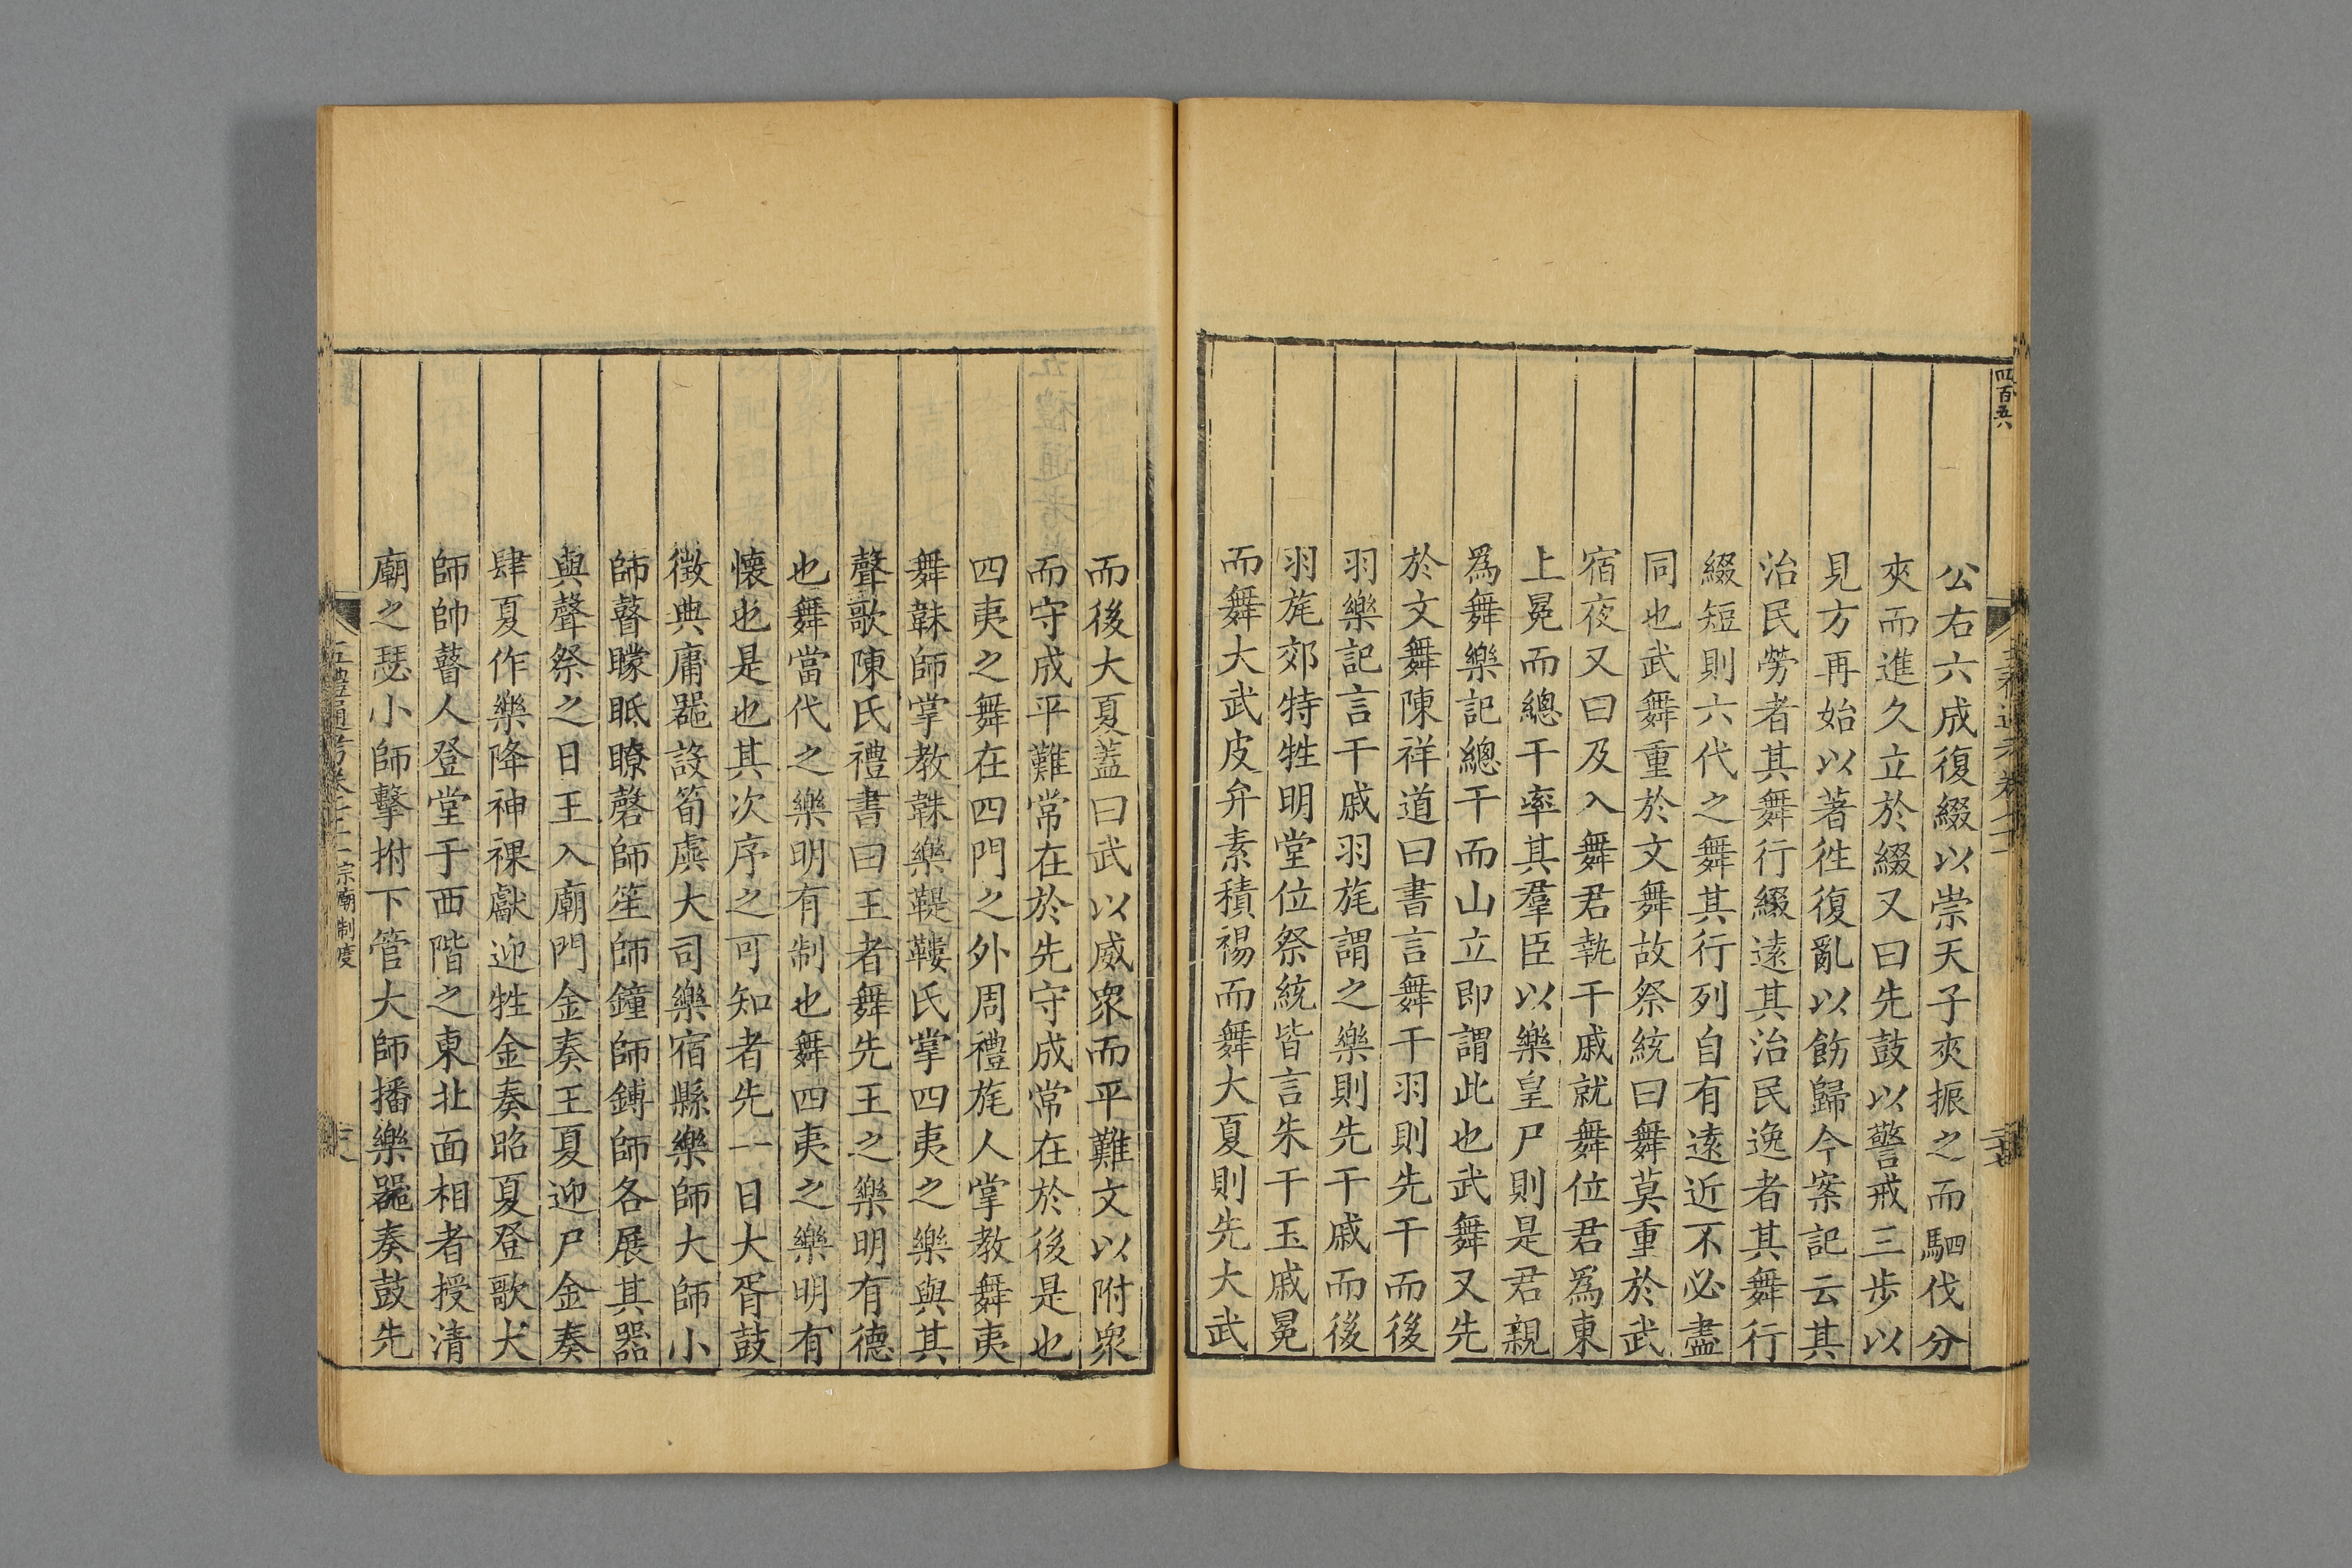 四百五六
公右六成復綴以崇天子夾振之而駟伐分
夾而進久立於綴又曰先鼓以警戒三步以
見方再始以著徃復亂以飭歸今案記云其
治民勞者其舞行綴遠其治民逸者其舞行
綴短則六代之舞其行列自有遠近不必盡
同也武舞重於文舞故祭統曰舞莫重於武
宿夜又曰及入舞君執干戚就舞位君爲東
上冕而總干率其羣臣以樂皇尸則是君親
爲舞樂記總干而山立即謂此也武舞又先
於文舞陳祥道曰書言舞干羽則先干而後
羽樂記言干戚羽旄謂之樂則先干戚而後
羽旄郊特牲明堂位祭統皆言朱干玉戚冕
而舞大武皮弁素積裼而舞大夏則先大武
而後大夏蓋曰武以威衆而平難文以附衆
而守成平難常在於先守成常在於後是也
四夷之舞在四門之外周禮旄人掌教舞夷
舞韎師掌教韎樂鞮鞻氏掌四夷之樂與其
聲歌陳氏禮書曰王者舞先王之樂明有德
也舞當代之樂明有制也舞四夷之樂明有
懷也是也其次序之可知者先一日大胥鼓
徵典庸器設筍虡大司樂宿縣樂師大師小
師瞽矇眡瞭磬師笙師鐘師鎛師各展其器
與聲祭之日王入廟門金奏王夏迎尸金奏
肆夏作樂降神祼獻迎牲金奏昭夏登歌大
師帥瞽人登堂于西階之東北面相者授清
廟之瑟小師擊拊下管大師播樂器奏鼓先
五禮通考卷六十一宗廟制度